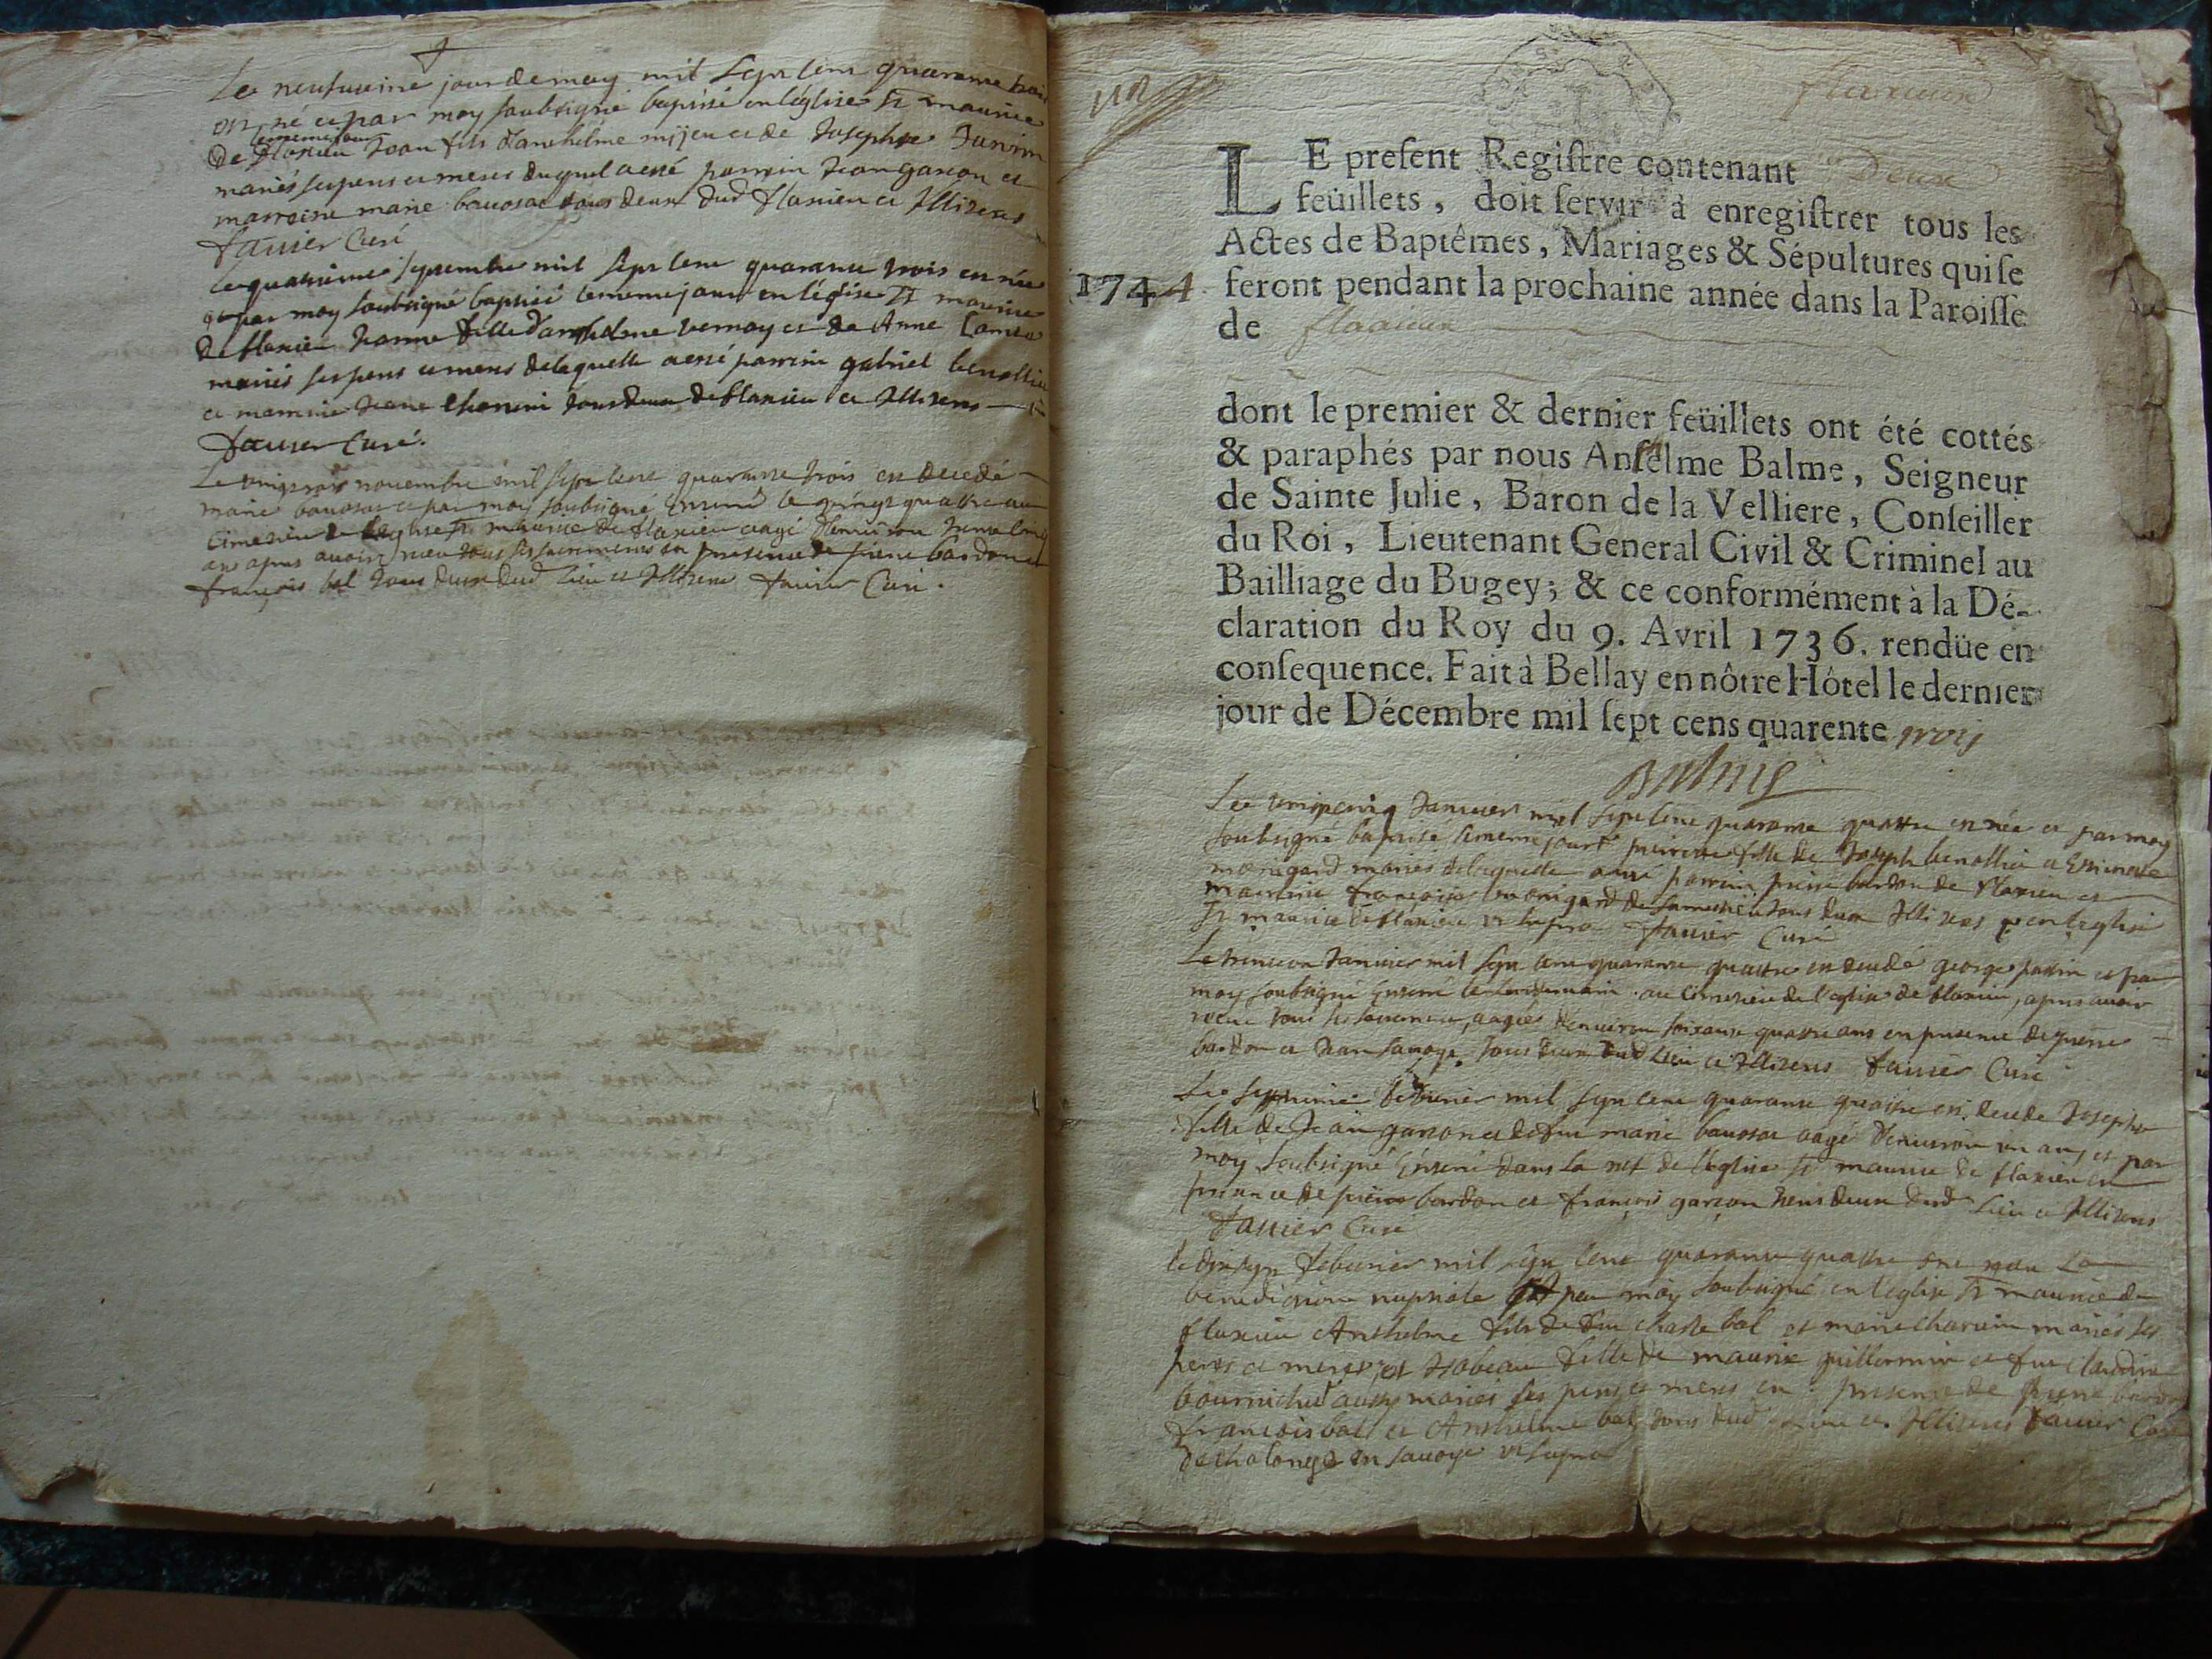 Le neufvieme jour de may mil sept cent quarante trois
est né et par moy soubsigné baptisé en léglise St maurice
le meme jour
de flaxieu Jean fils d'anthelme mijeu et de Josephte
mariés ses peres et meres duquel a esté parrein Jean garçon et
marreine marie bauosat tous deux dud flaxieu et Illiteres
favier Curé
Le quatrieme septembre mil sept cent quarante trois est née
et par moy soubsigné baptisée le meme jour en léglise St maurice
de flaxieu Jeanne fille d'anthelme vernay et de Anne
mariés ses peres et meres de laquelle a esté parrein gabriel benollin
et marreine Jeane tous deux de flaxieu et Illiteres
favier Curé.
Le vingt trois novembre mil sept cent quarante trois est decedé
marie bauosat et par moy soubsigné Enterré le vingt quattre au
Cimetiere de leglise St maurice de flaxieu aagé d'environ trente cinq
ans apres avoir receu tous ses sacrements en presence de pierre bardon et
françois bal tous deux dud. lieu et Illiteres favier Curé.
flaxieu
LE present Registre contenant Deux
feüillets, doit servir à enregistrer tous les
Actes de Baptêmes, Mariages & Sépultures qui se
1744 feront pendant la prochaine année dans la Paroisse
de flaxieu
dont le premier & dernier feüillets ont été cottés
& paraphés par nous Anthelme Balme, Seigneur
de Sainte Julie, Baron de la Velliere, Conseiller
du Roi, Lieutenant General Civil & Criminel au
Bailliage du Bugey; & ce conformément à la Dé-
claration du Roy du 9. Avril 1736. rendüe en
consequence. Fait à Bellay en nôtre Hôtel le dernier
jour de Décembre mil sept cens quarente trois
Balme
Le vingt cinq Janvier mil sept cent quarante quattre est née et par moy
soubsigné baptisé le meme jour pierrette fille de Joseph benollin et
montgard mariés de laquelle a esté parrein pierre bardon de flaxieu et
marreine françoise montgard de tous deux Illiteres en leglise
St maurice de flaxieu ut supra favier Curé
Le trente un Janvier mil sept cent quarante quattre est decedé george et par
moy soubsigné Enterré le lendemain au Cimetiere de l'eglise de flaxieu, apres avoir
receu tous ses sacrements, aagé d'environ soixante quattre ans en presence de pierre
bardon et Jean savoye tous deux dud lieu et Illiteres favier Curé
Le septieme febvrier mil sept cent quarante quattre est decede Josephte
fille de Jean garçon et de fue marie bauosat aagé d'environ un an, et par
moy soubsigné Enterré dans la nef de l'Eglise St maurice de flaxieu en
presence de pierre bardon et françois garçon tous deux dud lieu et Illiteres
favier Curé
le dix sept febvrier mil sept cent quarante quattre ont receu la
benediction nuptiale par moy soubsigné en leglise St maurice de
flaxieu Anthelme fils de feu bal et marie mariés ses
peres et meres, et Isabeau fille de maurice guillermin et fue Claudine
aussy mariés ses peres et meres en presence de pierre bardon
françois bal et Anthelme bal tous dud lieu et Illiteres favier Curé
en savoye ut supra